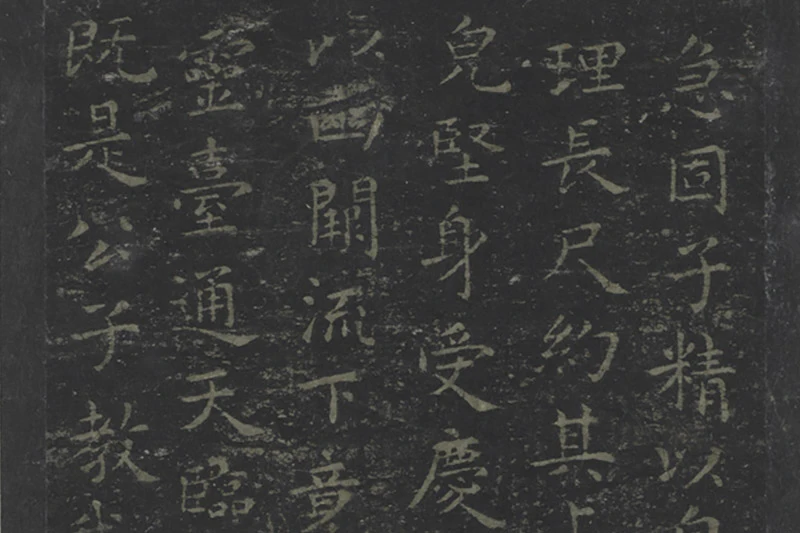 急固子精以自
理長尺約其
皃堅身受慶
以幽闕流下竟
靈臺通天臨
既是公子教